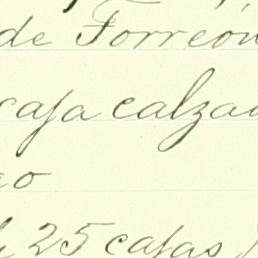 de Torreón
caja calza
25 cajas